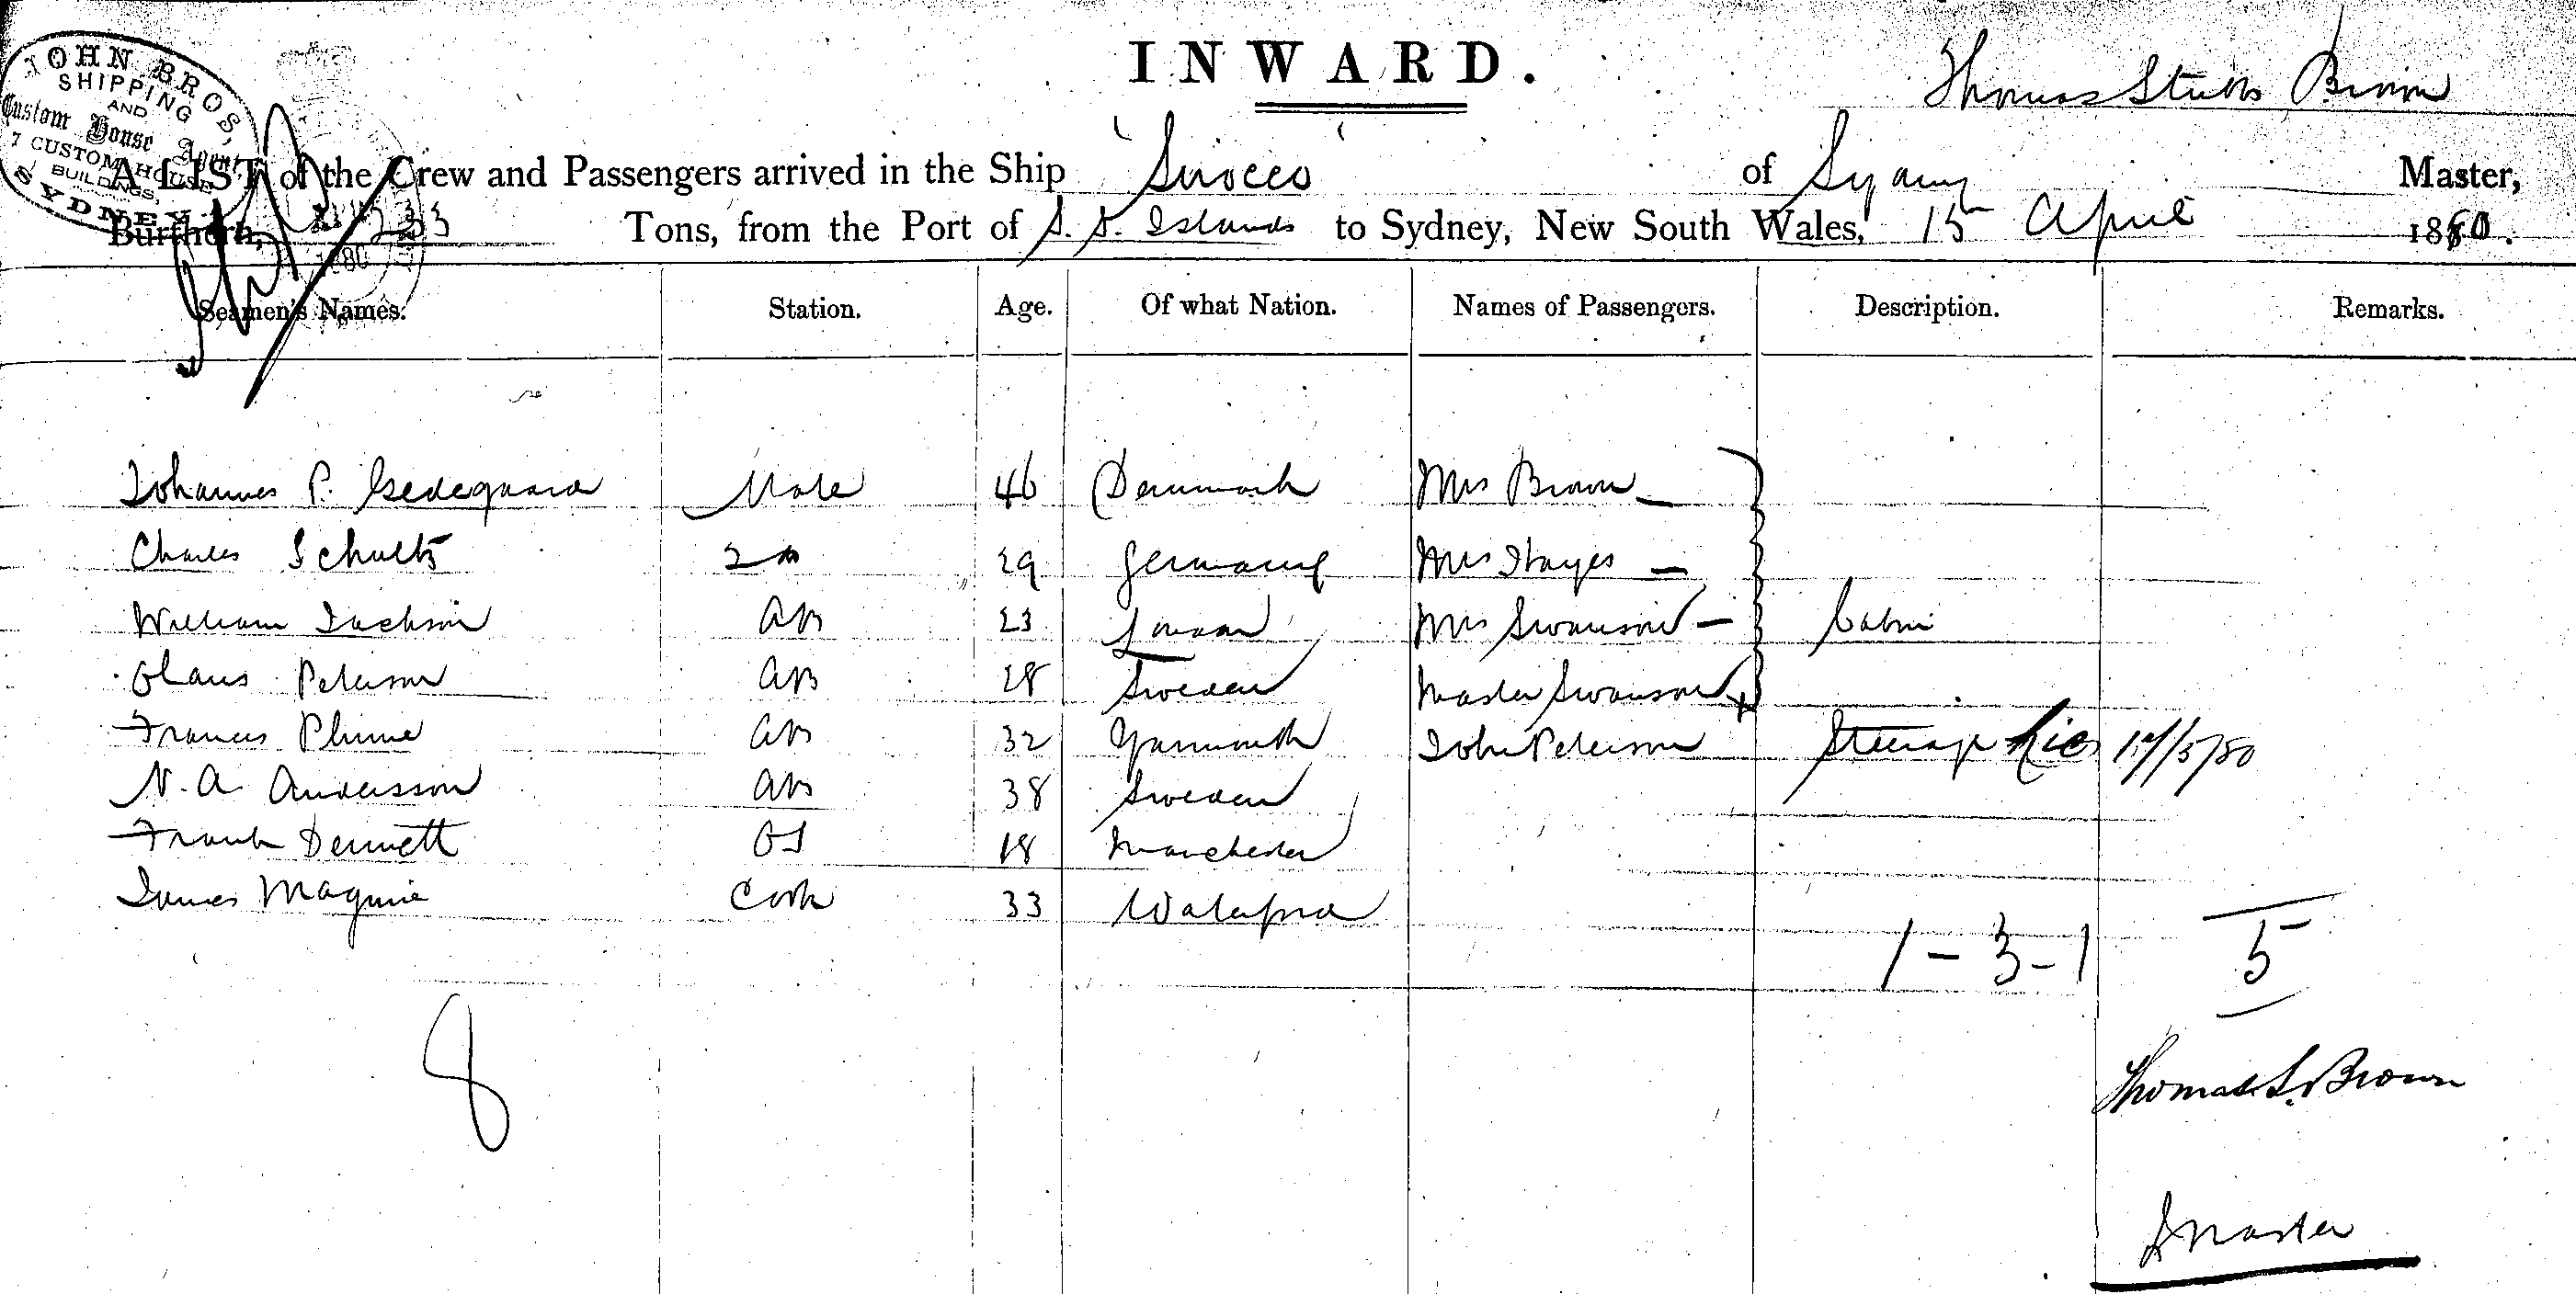 INWARD.
JOHN BROS.
SHIPPING
AND
Custom House Agents,
7 CUSTOM HOUSE
BUILDINGS,
SYDNEY.
Thomas Stubbs Brown
A LIST of the Crew and Passengers arrived in the Ship 'Sirocco' of Sydney Master,
Burthern, 233 Tons, from the Port of S. S. Islands to Sydney, New South Wales, 15 April 1880.
Seamen's Names. Station. Age. Of what Nation. Names of Passengers. Description. Remarks.
Johannes P. Gedegaard Mate 46 Denmark Mrs Brown
Charles Schultz 2nd 29 Germany Mrs Hayes
William Jackson AB 23 Mrs Swanson Cabin
Olaus Peterson AB 28 Sweden Master Swanson
Frances Plume AB 32 Yarmouth John Peterson Steerage
N. A. Andersson AB 38 Sweden
Frank Dennett OS 18 Manchester
James Maguire Cook 33 Waterford
1 - 3 - 1 5
8
Thomas S. Brown
Master